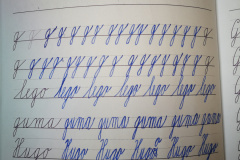 g g g g g g g g g g g g g g
g g g g g g g g g g g g g g
lego lego lego lego lego lego lego
guma guma guma guma guma guma
Hugo Hugo Hugo Hugo Hugo Hugo